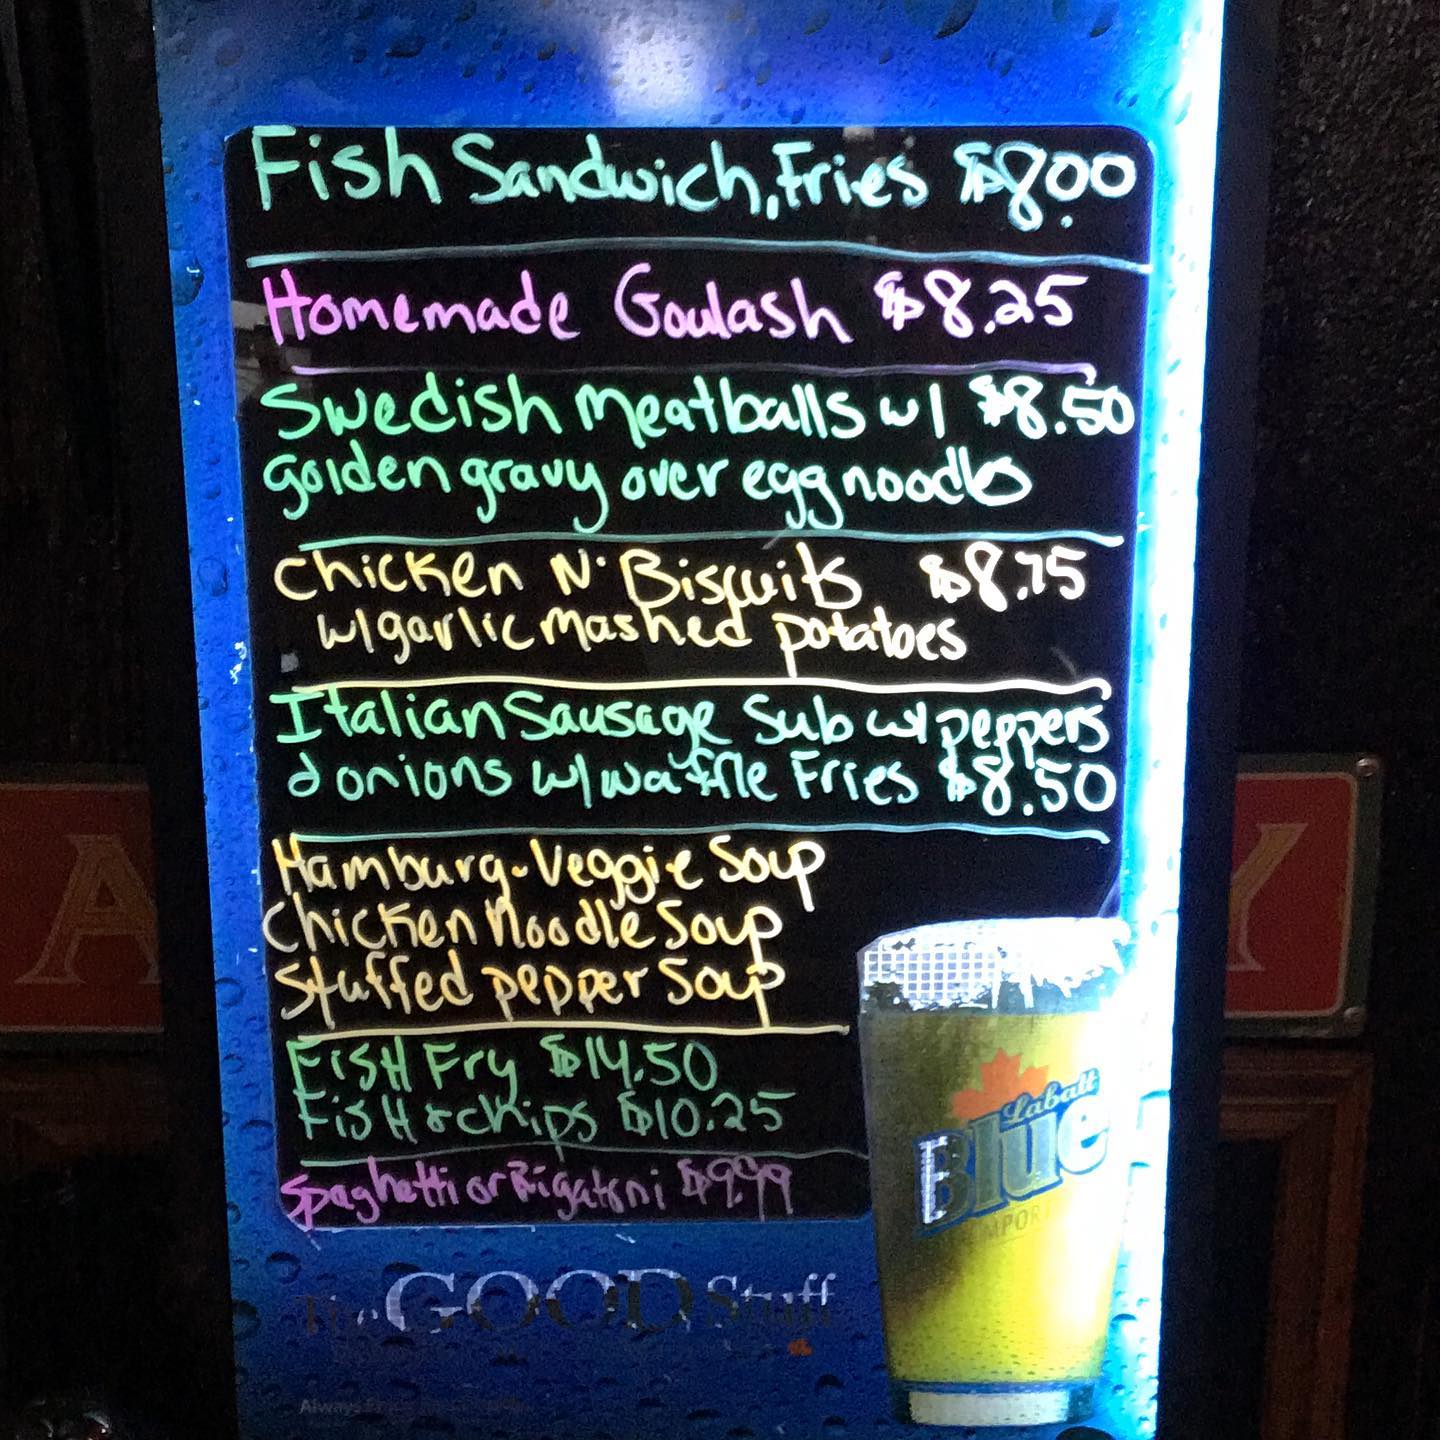 Fish Sandwich, Fries $8.00
Homemade Goulash $8.25
Swedish Meatballs w/ $8.50
golden gravy over egg noodles
Chicken N' Biscuits $8.75
w/garlic mashed potatoes
Italian Sausage Sub w/ peppers
& onions w/waffle Fries $8.50
Hamburg-Veggie Soup
Chicken Noodle Soup
Stuffed pepper Soup
FisH Fry $14.50
FisH & chips $10.25
Spaghetti or Rigatoni $9.99
Labatt
Blue
The GOOD Stuff
Always
A
Y